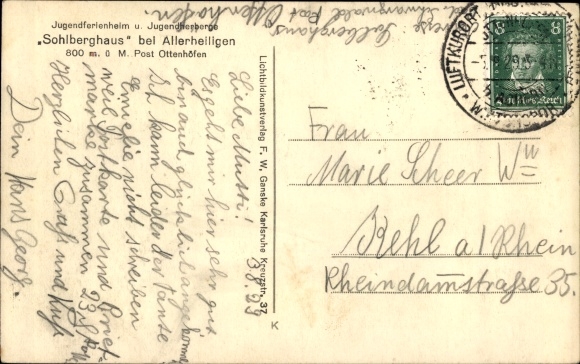 Jugendferienheim u. Jugendherberge
„Sohlberghaus" bei Allerheiligen
800 m. ü M. Post Ottenhöfen
Adresse Sohlberghaus
Post Ottenhöfen.
LUFTKURORT
8 8
Deutsches Reich
Lichtbildkunstverlag F. W. Ganske Karlsruhe Kreuzstr. 37
K
3.8.29
Liebe Mutti!
Es geht mir hier sehr gut
bin auch glücklich angekommen
Ich kann leider der Tante
Emelie nicht schreiben
weil Postkarte und Brief-
marke zusammen 23 Pf
Herzlichen Gruß und Kuß
Dein Hans Georg.
Frau
Marie Scheer Ww
Kehl a/Rhein
Rheindammstrasse 35.